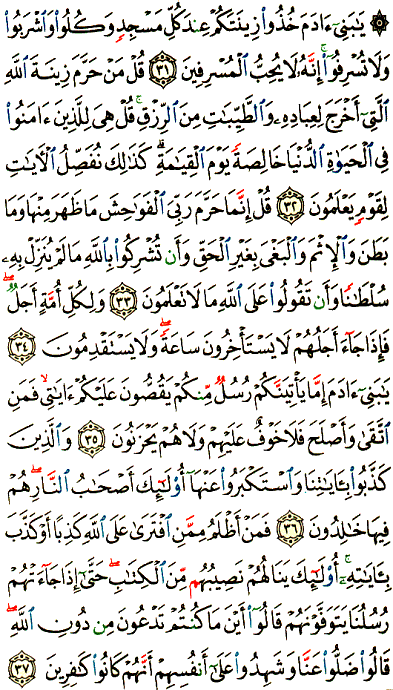 ۞ يَٰبَنِىٓ ءَادَمَ خُذُوا۟ زِينَتَكُمْ عِندَ كُلِّ مَسْجِدٍ وَكُلُوا۟ وَٱشْرَبُوا۟
وَلَا تُسْرِفُوٓا۟ ۚ إِنَّهُۥ لَا يُحِبُّ ٱلْمُسْرِفِينَ ٣١ قُلْ مَنْ حَرَّمَ زِينَةَ ٱللَّهِ
ٱلَّتِىٓ أَخْرَجَ لِعِبَادِهِۦ وَٱلطَّيِّبَٰتِ مِنَ ٱلرِّزْقِ ۚ قُلْ هِىَ لِلَّذِينَ ءَامَنُوا۟
فِى ٱلْحَيَوٰةِ ٱلدُّنْيَا خَالِصَةً يَوْمَ ٱلْقِيَٰمَةِ ۗ كَذَٰلِكَ نُفَصِّلُ ٱلْءَايَٰتِ
لِقَوْمٍ يَعْلَمُونَ ٣٢ قُلْ إِنَّمَا حَرَّمَ رَبِّىَ ٱلْفَوَٰحِشَ مَا ظَهَرَ مِنْهَا وَمَا
بَطَنَ وَٱلْإِثْمَ وَٱلْبَغْىَ بِغَيْرِ ٱلْحَقِّ وَأَن تُشْرِكُوا۟ بِٱللَّهِ مَا لَمْ يُنَزِّلْ بِهِۦ
سُلْطَٰنًا وَأَن تَقُولُوا۟ عَلَى ٱللَّهِ مَا لَا تَعْلَمُونَ ٣٣ وَلِكُلِّ أُمَّةٍ أَجَلٌ ۖ
فَإِذَا جَآءَ أَجَلُهُمْ لَا يَسْتَأْخِرُونَ سَاعَةً ۖ وَلَا يَسْتَقْدِمُونَ ٣٤
يَٰبَنِىٓ ءَادَمَ إِمَّا يَأْتِيَنَّكُمْ رُسُلٌ مِّنكُمْ يَقُصُّونَ عَلَيْكُمْ ءَايَٰتِى ۙ فَمَنِ
ٱتَّقَىٰ وَأَصْلَحَ فَلَا خَوْفٌ عَلَيْهِمْ وَلَا هُمْ يَحْزَنُونَ ٣٥ وَٱلَّذِينَ
كَذَّبُوا۟ بِـَٔايَٰتِنَا وَٱسْتَكْبَرُوا۟ عَنْهَآ أُو۟لَٰٓئِكَ أَصْحَٰبُ ٱلنَّارِ ۖ هُمْ
فِيهَا خَٰلِدُونَ ٣٦ فَمَنْ أَظْلَمُ مِمَّنِ ٱفْتَرَىٰ عَلَى ٱللَّهِ كَذِبًا أَوْ كَذَّبَ
بِـَٔايَٰتِهِۦٓ ۚ أُو۟لَٰٓئِكَ يَنَالُهُمْ نَصِيبُهُم مِّنَ ٱلْكِتَٰبِ ۖ حَتَّىٰٓ إِذَا جَآءَتْهُمْ
رُسُلُنَا يَتَوَفَّوْنَهُمْ قَالُوٓا۟ أَيْنَ مَا كُنتُمْ تَدْعُونَ مِن دُونِ ٱللَّهِ ۖ
قَالُوا۟ ضَلُّوا۟ عَنَّا وَشَهِدُوا۟ عَلَىٰٓ أَنفُسِهِمْ أَنَّهُمْ كَانُوا۟ كَٰفِرِينَ ٣٧